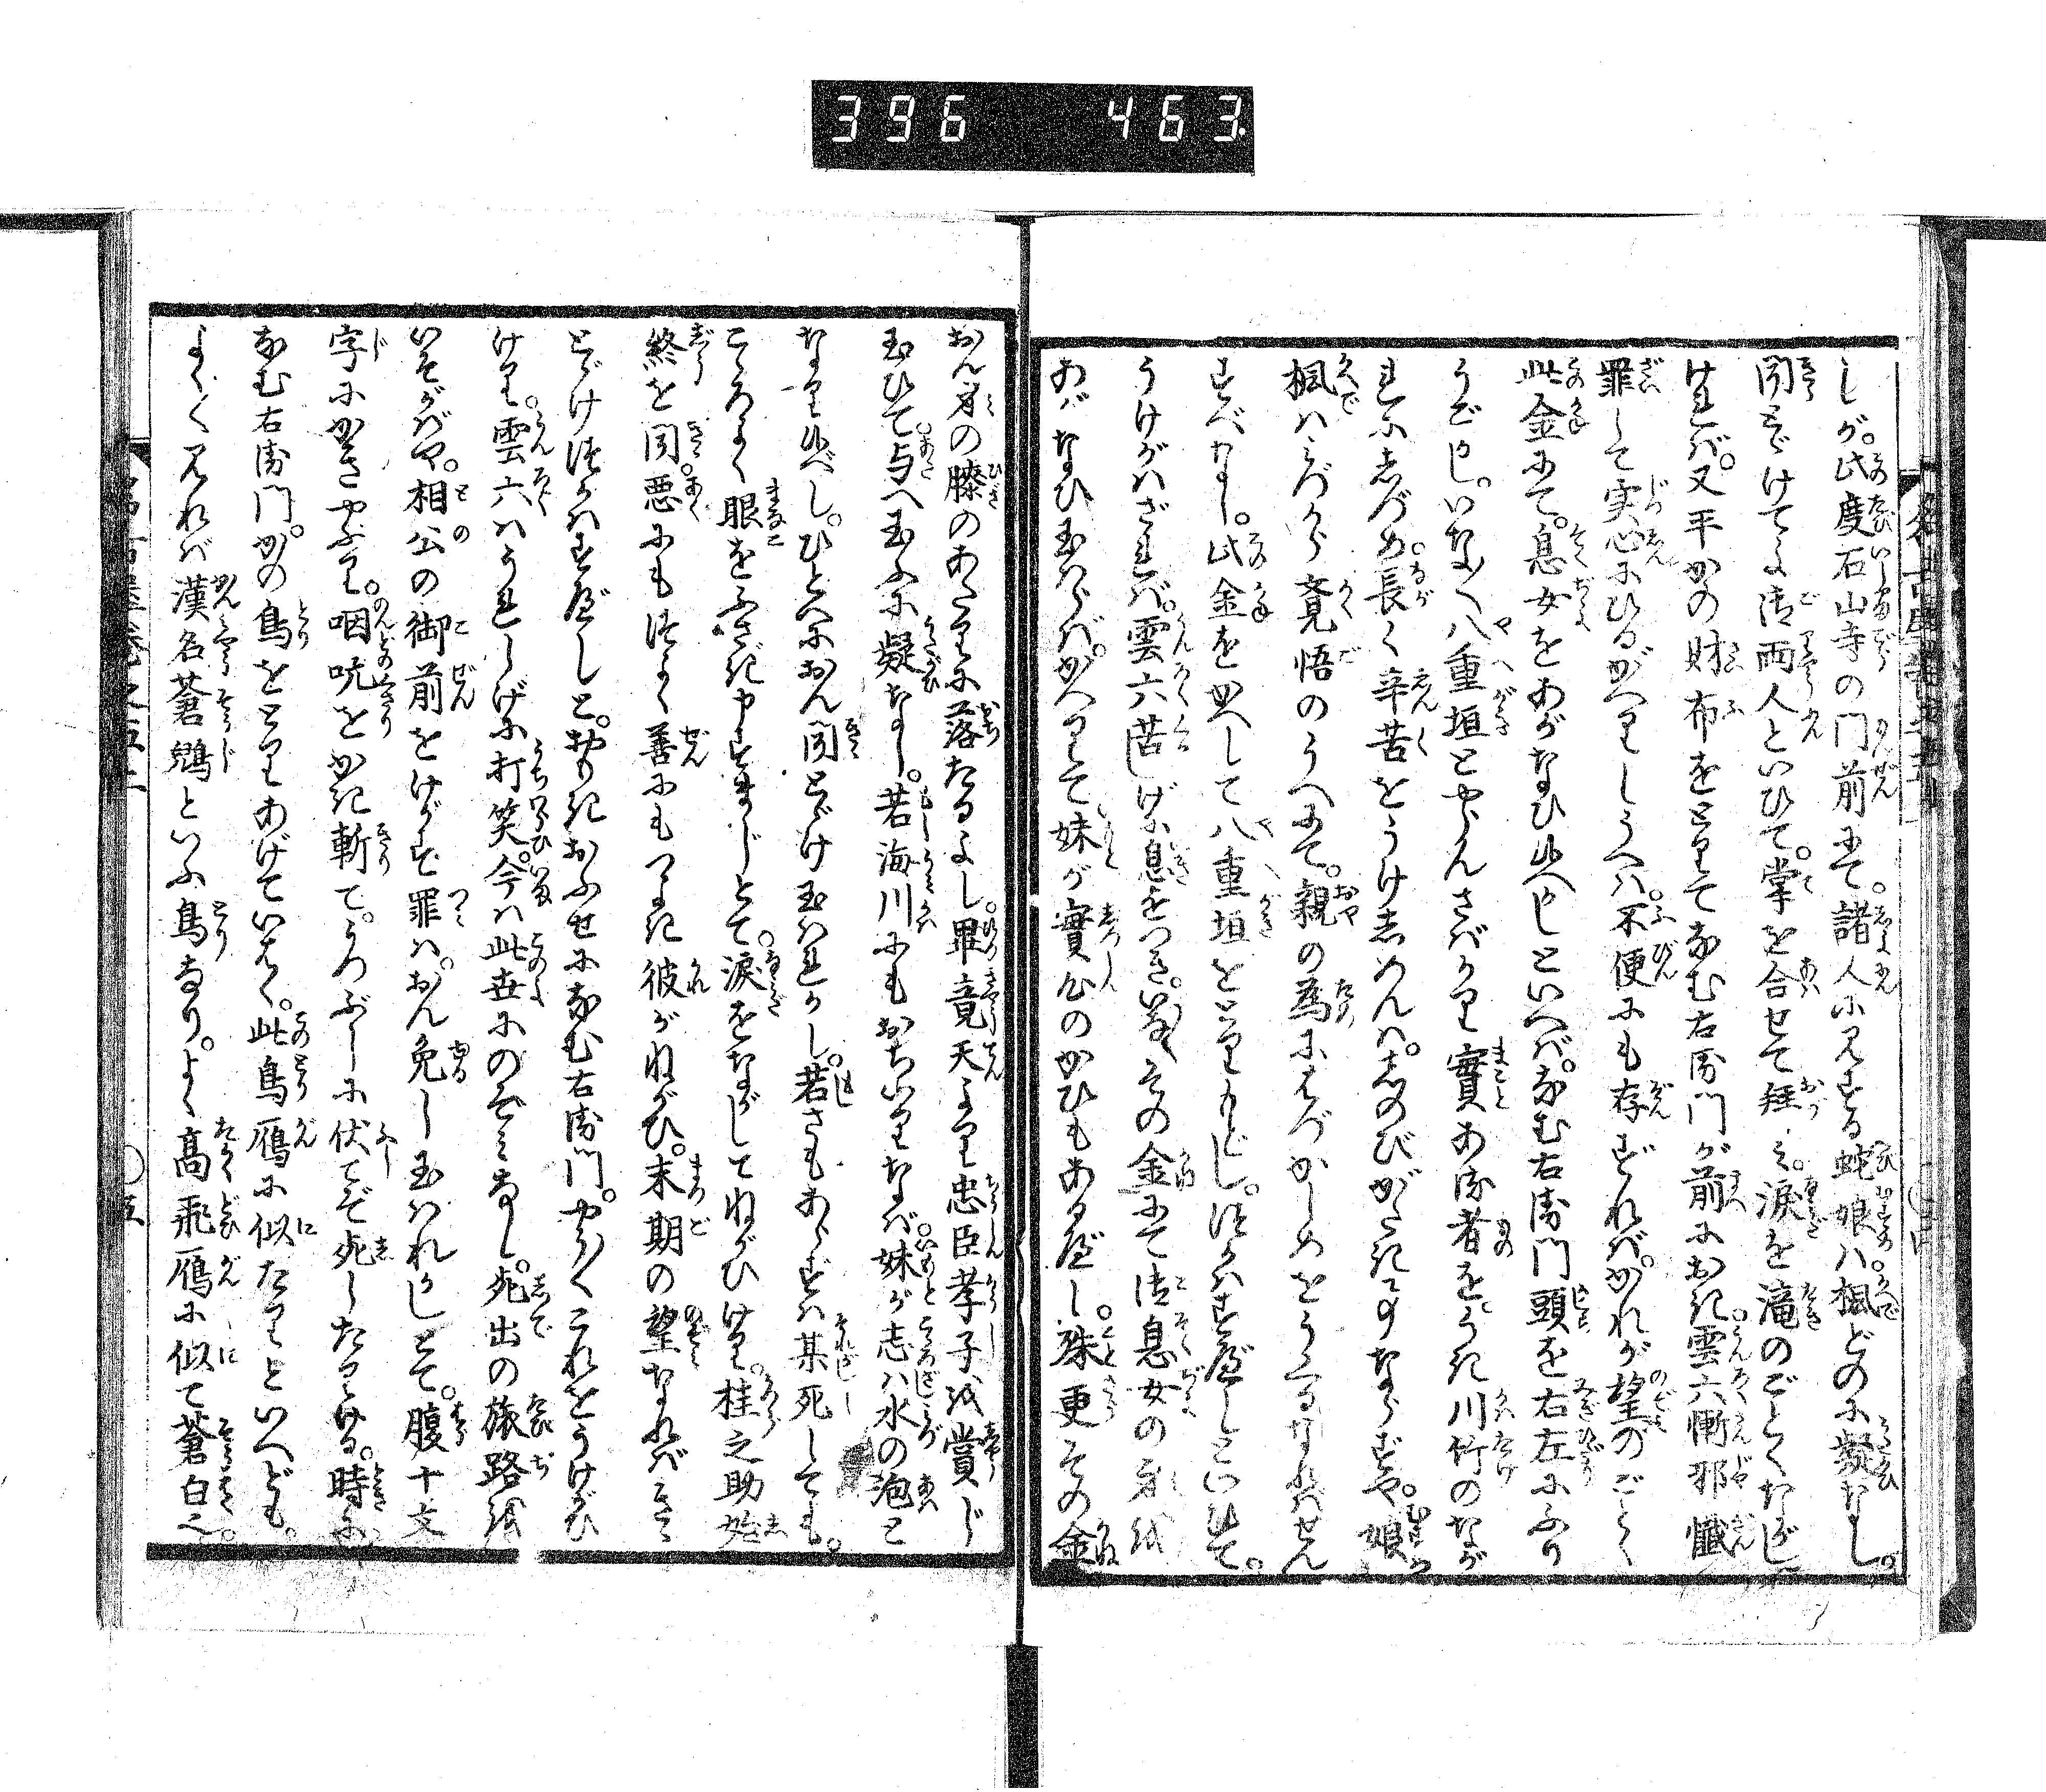 396 463.
しが。此度石山寺の門前にて。諸人に見する蛇娘ハ。楓どのに疑なし。
聞とゞけてよ御両人といひて。掌を合せて拝ミ。涙を滝のごとくながし
けれバ。又平かの財布をとりてなむ右衛門が前におき。雲六慚邪懺
罪して実心にひるがへりしうへハ。不便にも存ずれバ。かれが望のごとく
此金にて。息女をあがなひ候へかしといへバ。なむ右衛門頭を右左にふり
うごかし。いな〳〵八重垣とやらんさバかり實ある者を。うき川竹のなが
れにしづめ。長く辛苦をうけしめんハ。しのびがたき事ならずや。娘
楓ハミづから覚悟のうへにて。親の為にはづかしめをうくるなれバせん
すべなし。此金をかへして八重垣をとりもどし。得さすべしといひて。
うけがハざれバ。雲六苦しげに息をつき。いな〳〵その金にて御息女の身を
あがなひ玉ハらバ。かへりて妹が實心のかひもあるべし。殊更その金
おん身の膝のあたりに落たるよし。畢竟天より忠臣孝子を賞じ
玉ひて。与へ玉ふに疑なし。若海川にもおちいりなバ。妹が志ハ水の泡と
なり候べし。ひとへにおん聞とゞけ玉ハれかし。若さもあらずハ某死しても。
こゝろよく眼をふさぎ申すまじとて。涙をながしてねがひけり。桂之助始
終を聞。悪にもつよく善にもつよき彼がねがひ。末期の望なれバきゝ
とゞけ得さすべしと。おもきおふせになむ右衛門。やう〳〵これをうけがひ
けり。雲六ハうれしげに打笑。今ハ此世にのぞミなし。死出の旅路を
いそがバや。相公の御前をけがす罪ハ。おん免し玉ハれかしとて。腹十文
字にかきやぶり。咽吭をかき斬て。うつぶしに伏てぞ死したりける。時に
なむ右衛門。かの鳥をとりあげていはく。此鳥雁に似たりといへども。
よく〳〵見れバ漢名蒼鴰といふ鳥なり。よく高飛雁に似て蒼白也。